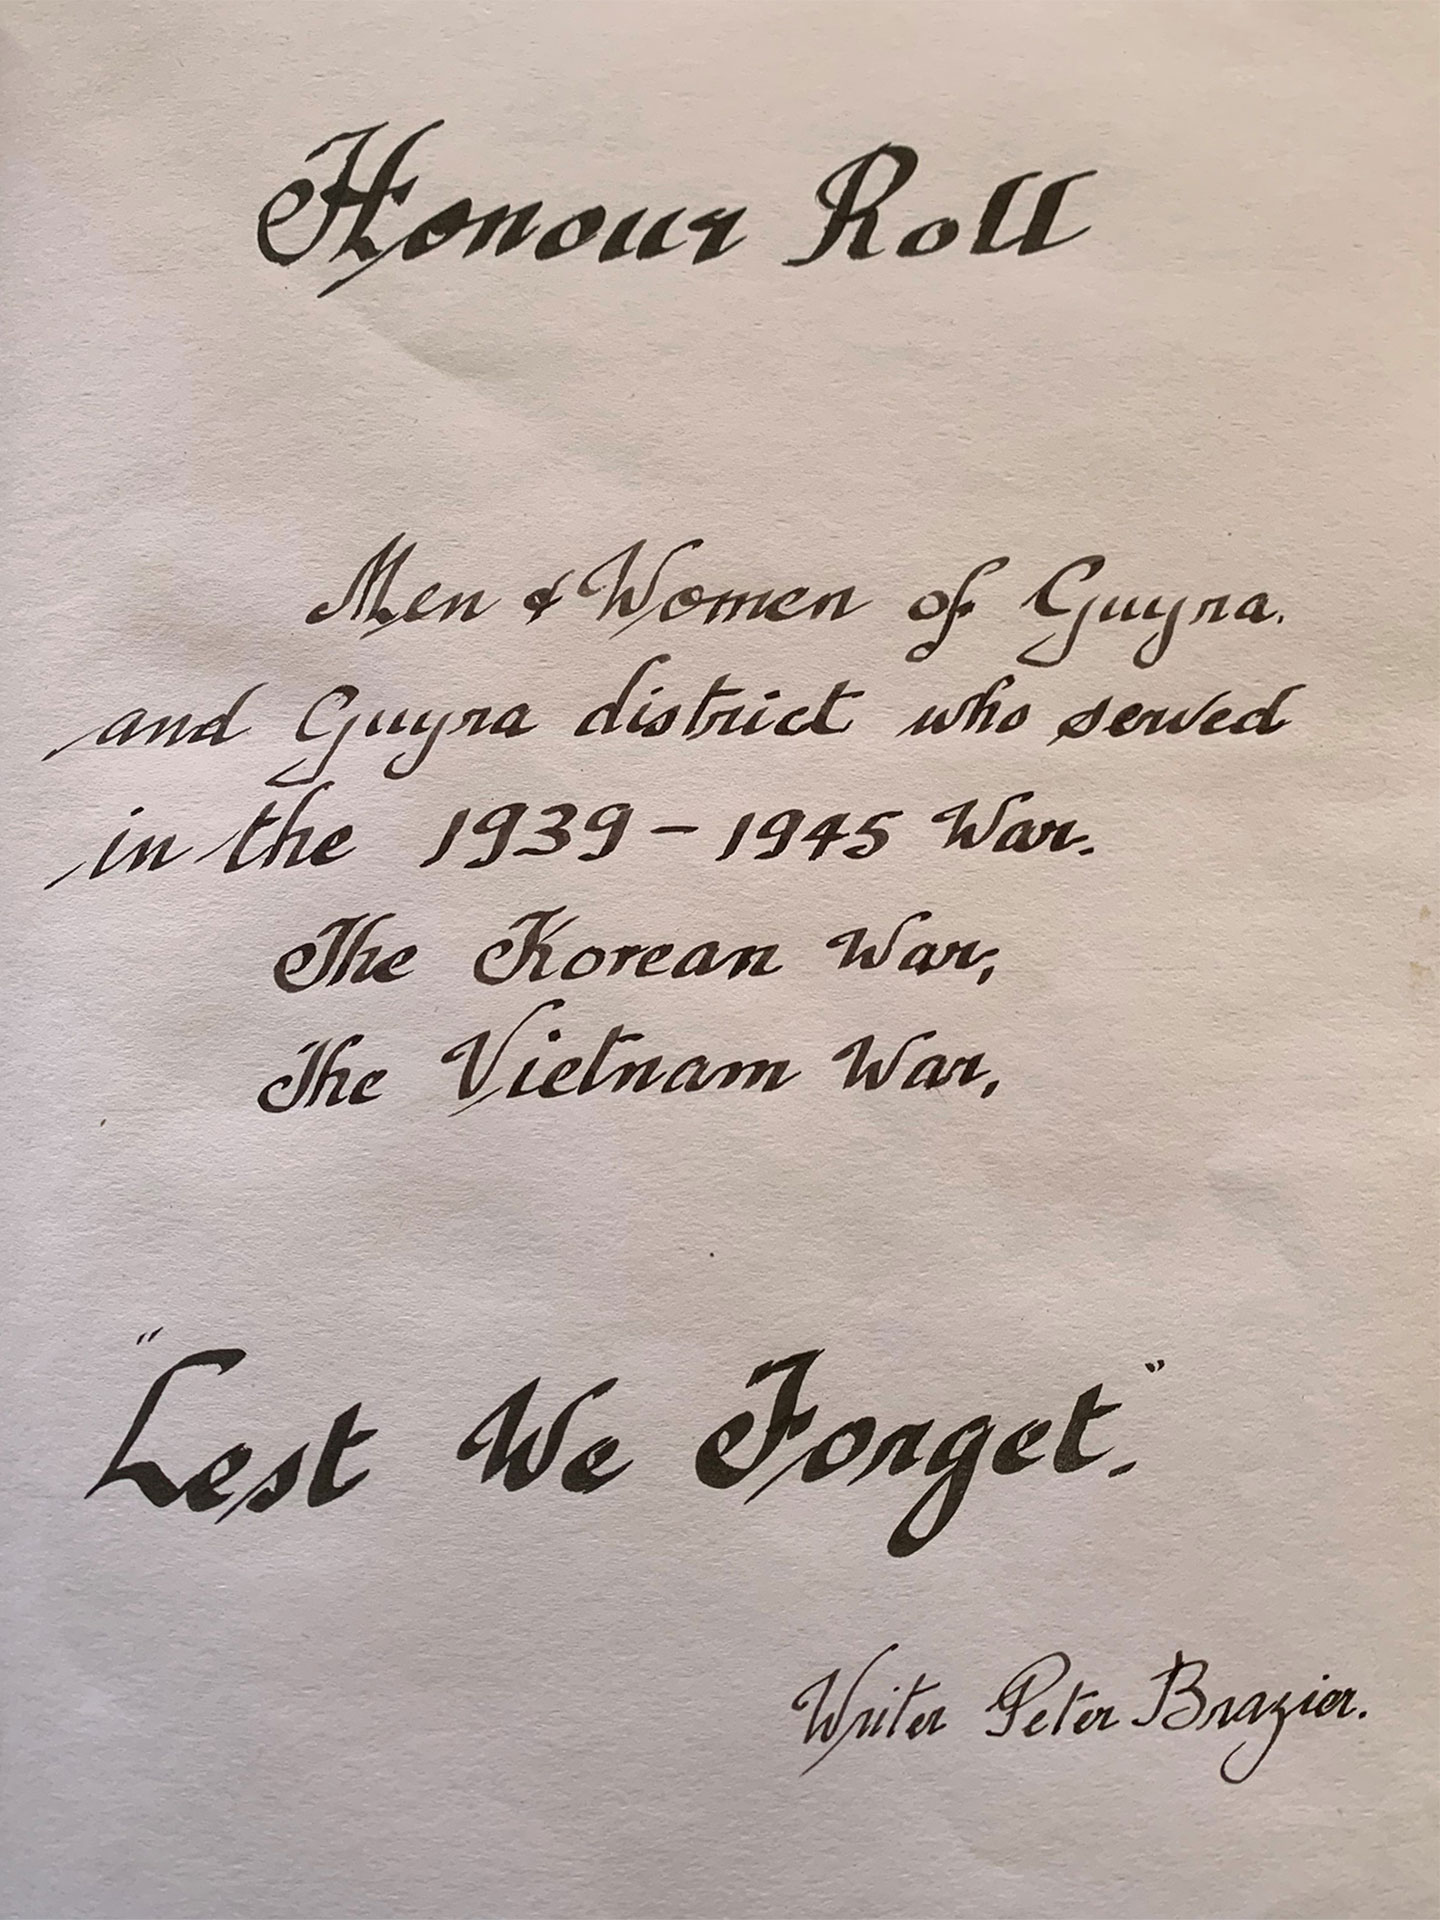 Honour Roll
Men & Women of Guyra.
and Guyra district who served
in the 1939 - 1945 War.
The Korean War,
The Vietnam War,
"Lest We Forget."
Writer Peter Brazier.